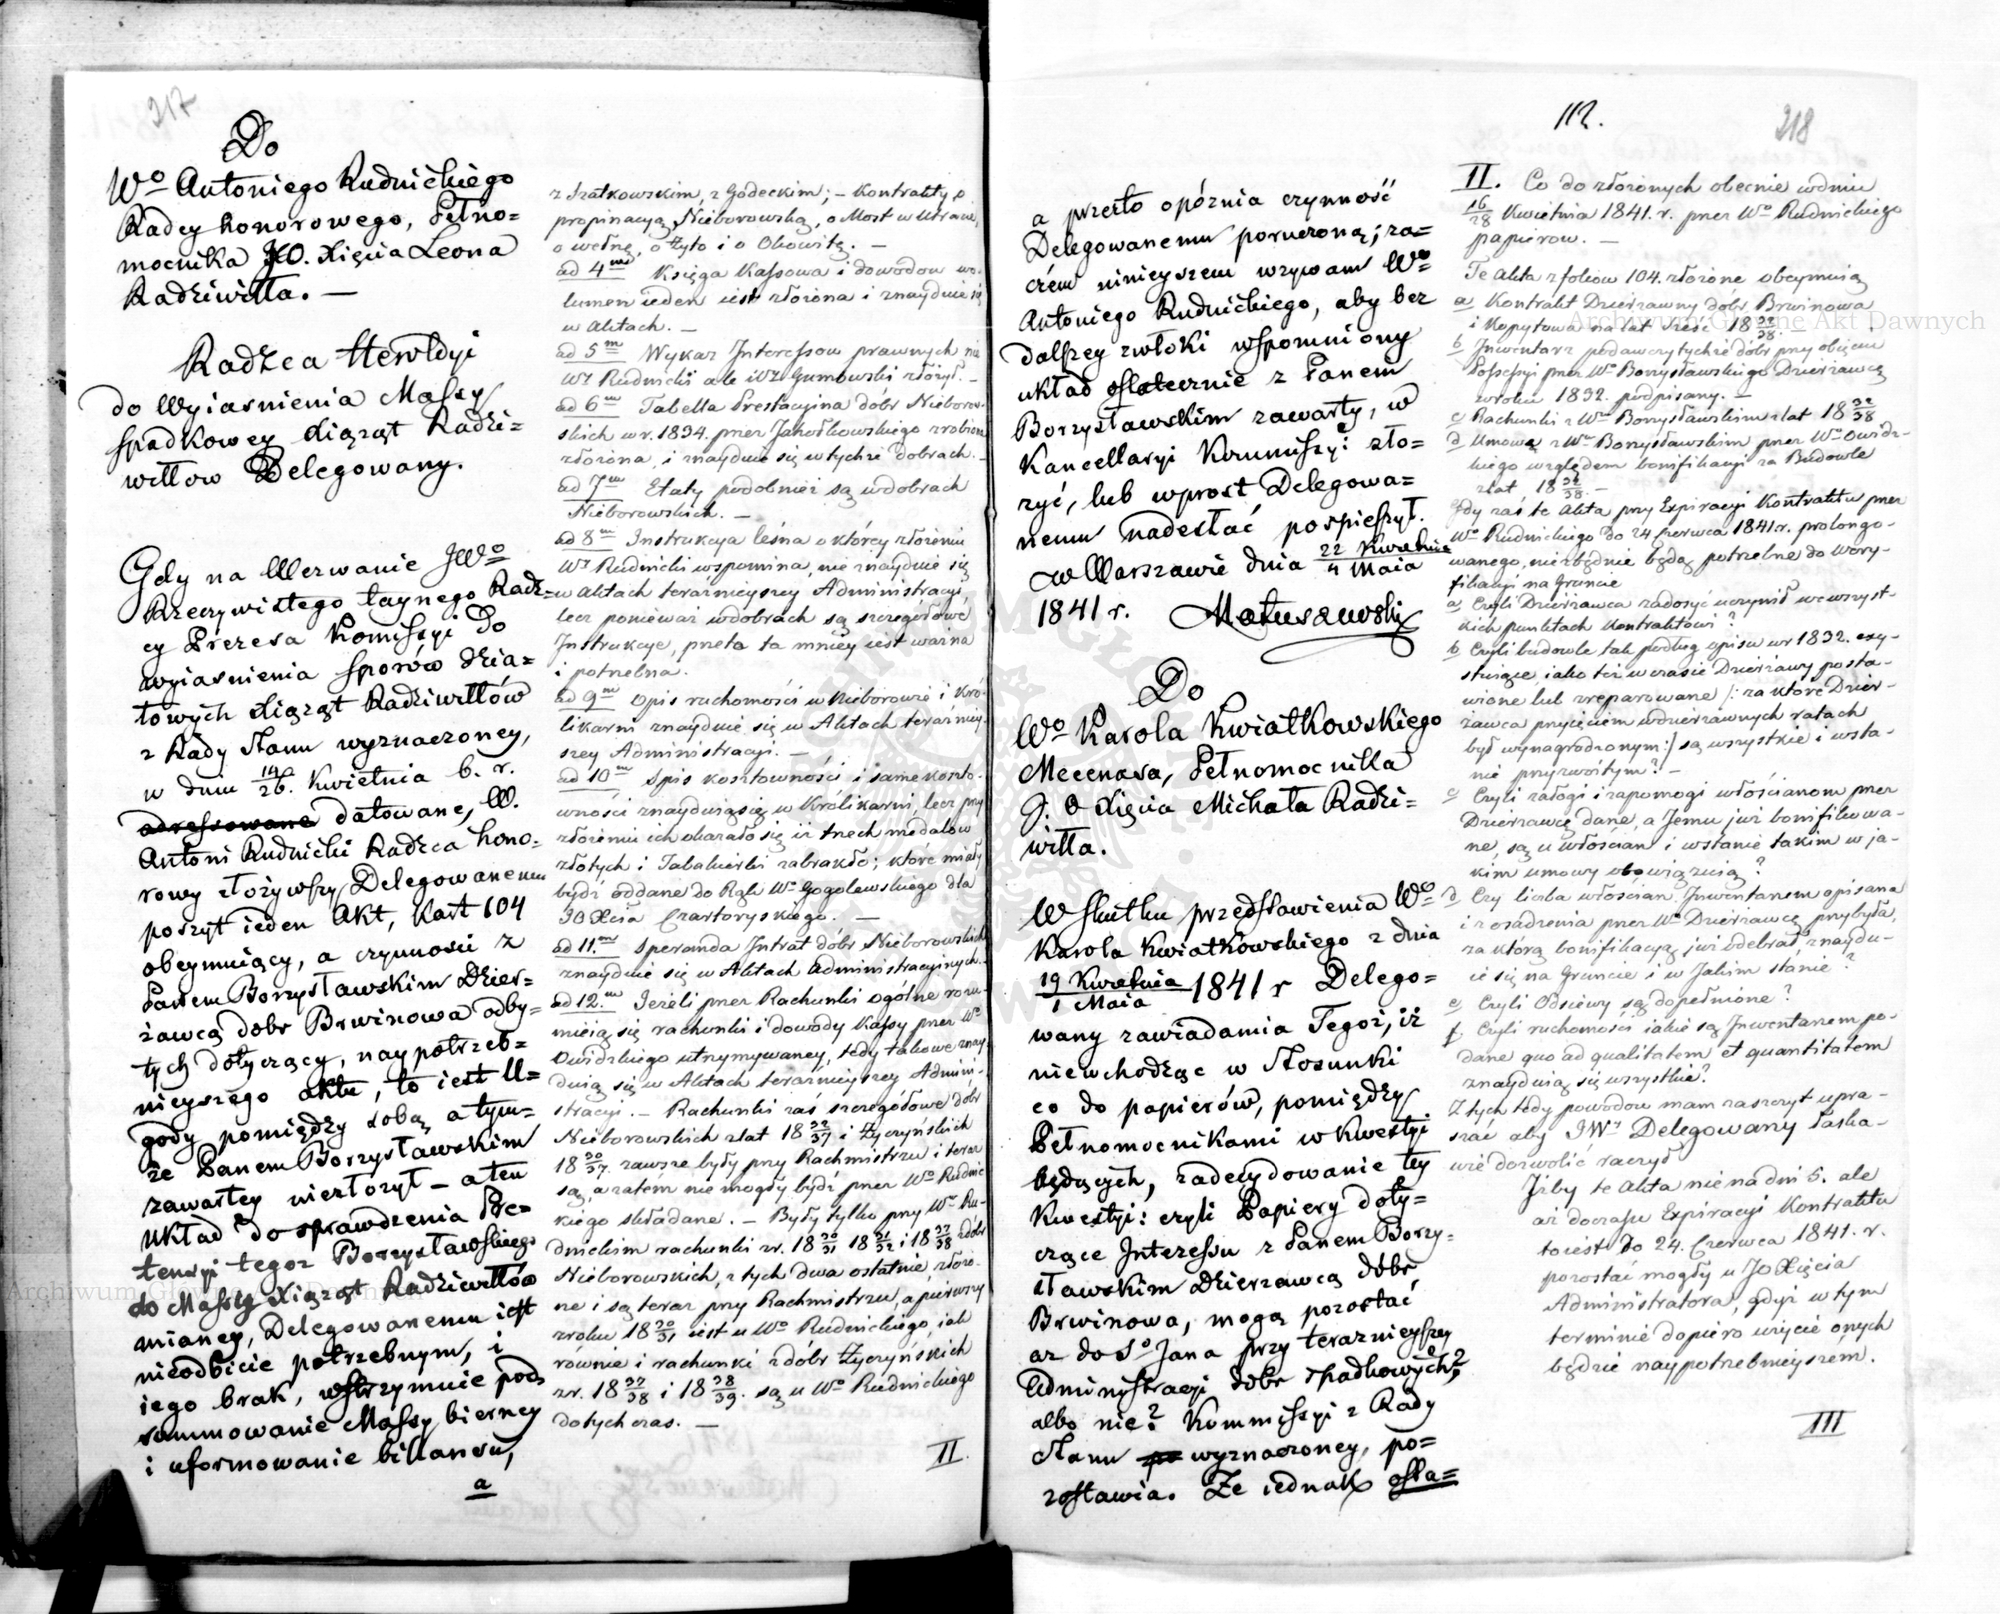 217
Do
Wo Antoniego Rudnickiego
Radcy honorowego, Pełno=
mocnika JO. Xięcia Leona
Radziwiłła. —
Radzca Heroldyi
do Wyiasnienia Massy
spadkowey Xiążąt Radzi=
wiłłow Delegowany.
Gdy na Wezwanie JWo
Rzeczywistego taynego Radz=
cy Prezesa Kommissyi do
wyiasnienia sporów dzia=
łowych Xiążąt Radziwiłłów
z Rady Stanu wyznaczoney,
w dniu 14/26. Kwietnia b. r.
adressowane datowane, W.
Antoni Rudnicki Radzca hono=
rowy złożywszy Delegowanemu
poszyt ieden Akt, Kart 104
obeymuiący, a czynnosci z
Panem Borzysławskim Dzier=
żawcą dobr Brwinowa odby=
tych dotyczący, naypotrzeb=
nieyszego akta, to iest U=
gody pomiędzy sobą a tym=
że Panem Borzysławskim
zawartey niezłożył — a ten
układ do sprawdzenia Pre=
tensyi tegoż Borzysławskiego
do Massy Xiążąt Radziwiłłów
mianey, Delegowanemu iest
nieodbicie potrzebnym, i
iego brak, wstrzymuie pod=
summowanie Massy bierney
i uformowanie billansu,
a
z Szatkowskim, z Godeckim; — Kontrakty o
propinacyą Nieborowską, o Most w Utracie,
o wełnę, o Żyto i o Okowitę. —
ad 4mo Księga Kassowa i dowodow wo-
lumen ieden iest złożona i znayduie się
w Aktach. —
ad 5m Wykaz Interessow prawnych nie
Wy Rudnicki ale Wy Gumowski złożył. —
ad 6m Tabella Prestacyina dobr Nieborow-
skich w r. 1834. przez Jakołkowskiego zrobiona
złożona, i znayduie się w tychże dobrach. —
ad 7m Etaty podobnież są w dobrach
Nieborowskich. —
ad 8m Instrukcya leśna o którey złożeniu
Wy Rudnicki wspomina, nie znayduie się
w Aktach teraźnieyszey Administracyi,
lecz ponieważ w dobrach są szczegółowe
Instrukcye, przeto ta mniey iest ważna
i potrzebna.
ad 9m Opis ruchomości w Nieborowie i Kró-
likarni znayduie się w Aktach teraźniey-
szey Administracyi. —
ad 10m Spis kosztowności i same koszto-
wności znayduią się w Królikarni, lecz przy
złożeniu ich okazało się iż trzech medalow
złotych i Tabakierki zabrakło; które miały
bydź oddane do Rąk Wo Gogolewskiego dla
JO Xcia Czartoryskiego. —
ad 11.m Speranda Intrat dóbr Nieborowskich
znayduie się w Aktach Administracyinych.
ad 12.m Jeżeli przez Rachunki ogólne rozu-
mieią się rachunki i dowody Kassy przez Wo
Owidzkiego utrzymywaney, tedy takowe znay-
duią się w Aktach teraźnieyszey Admini-
stracyi. — Rachunki zaś szczegółowe dobr
Nieborowskich z lat 18 32/37 i Życzyńskich
18 30/37 zawsze były przy Rachmistrzu i teraz
są, a zatém nie mogły bydź przez Wo Rudnic-
kiego składane. — Były tylko przy Wm Ru-
dnickim rachunki z r. 18 30/31 18 31/32 i 18 37/38 z dóbr
Nieborowskich, z tych dwa ostatnie, złożo-
ne i są teraz przy Rachmistrzu, a pierwszy
z roku 18 30/31 iest u Wo Rudnickiego, iak
równie i rachunki z dóbr Życzyńskich
z r. 18 37/38 i 18 38/39. są u Wo Rudnickiego
dotychczas. —
II.
112.
218
a przeto opóźnia czynność
Delegowanemu poruczoną; za=
czém ninieyszem wzywam Wo
Antoniego Rudnickiego, aby bez
dalszey zwłoki wspomniony
układ ostatecznie z Panem
Borzysławskim zawarty, w
Kancellaryi Kommissyi zło=
żyć, lub wprost Delegowa=
nemu nadesłać pospieszył.
w Warszawie dnia 22 Kwietnia/4 Maia
1841 r. Matuszewski
Do
Wo Karola Kwiatkowskiego
Mecenasa, Pełnomocnika
J. O Xięcia Michała Radzi=
wiłła.
W skutku przedstawienia Wo
Karola Kwiatkowskiego z dnia
19 Kwietnia/1 Maia 1841 r Delego=
wany zawiadamia Tegoż, iż
niewchodząc w Stosunki
co do papierów, pomiędzy
Pełnomocnikami w Kwestyi
będących, zadecydowanie tey
Kwestyi: czyli Papiery doty=
czące Interessu z Panem Borzy=
sławskim Dzierzawcą dóbr
Brwinowa, mogą pozostać
aż do So Jana przy teraznieyszey
Administracyi dóbr spadkowych?
albo nie? Kommissyi z Rady
Stanu wyznaczoney, po=
zostawia. Że iednak osta=
II. Co do złożonych obecnie w dniu
16/28 Kwietnia 1841. r. przez Wo Rudnickiego
papierow. —
Te Akta z foliow 104. złożone obeymuią
a Kontrakt Dzierżawny dobr Brwinowa
i Kopytowa na lat sześć 18 32/38.
b Inwentarz podawczy tychże dóbr przy obięciu
Possessyi przez Wo Borzysławskiego Dzierżawcę
w roku 1832. podpisany. —
c Rachunki z Wm Borzysławskim z lat 18 32/38
d Umowę z Wm Borzysławskim przez Wo Owidz-
kiego względem bonifikacyi za Budowle
z lat 18 32/38. —
Gdy zaś te Akta przy Expiracyi Kontraktu przez
Wo Rudnickiego do 24 Czerwca 1841 r. prolongo-
wanego, niezbędnie będą potrzebne do wery-
fikacyi na Gruncie
a Czyli Dzierżawca zadosyć uczynił we wszyst-
kich punktach Kontraktowi?
b Czyli budowle tak podług opisu w r 1832. exy-
stuiące, iako też w czasie Dzierżawy posta-
wione lub zreparowane /: za które Dzier-
żawca przyięciem w dzierżawnych ratach
był wynagrodzonym:/ są wszystkie i w sta-
nie przyzwoitym? —
c Czyli załogi i zapomogi włościanom przez
Dzierżawcę dane, a Jemu iuż bonifikowa-
ne, są u włościan i w stanie takim w ja-
kim umowy obowiązuią?
d Czy liczba włościan Inwentarzem opisana
i z osadzenia przez Wo Dzierżawcę przybyła,
za którą bonifikacyą iuż odebrał, znaydu-
ie się na Gruncie i w Jakim stanie?
e Czyli Odsiewy są dopełnione?
f. Czyli ruchomości iakie są Inwentarzem po-
dane quo ad qualitatem et quantitatem
znayduią się wszystkie?
Z tych tedy powodow mam zaszczyt upra-
szać aby JWy Delegowany łaska-
wie dozwolić raczył
Iżby te Akta nie na dni 5. ale
aż do czasu Expiracyi Kontraktu
to iest do 24. Czerwca 1841. r.
pozostać mogły u JO Xięcia
Administratora, gdyż w tym
terminie dopiero użycie onych
będzie naypotrzebnieyszem.
III
Archiwum Główne Akt Dawnych
Archiwum Główne Akt Dawnych